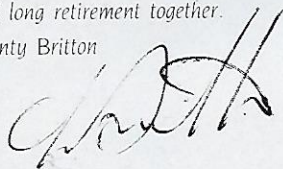 long retirement together.
nty Britton